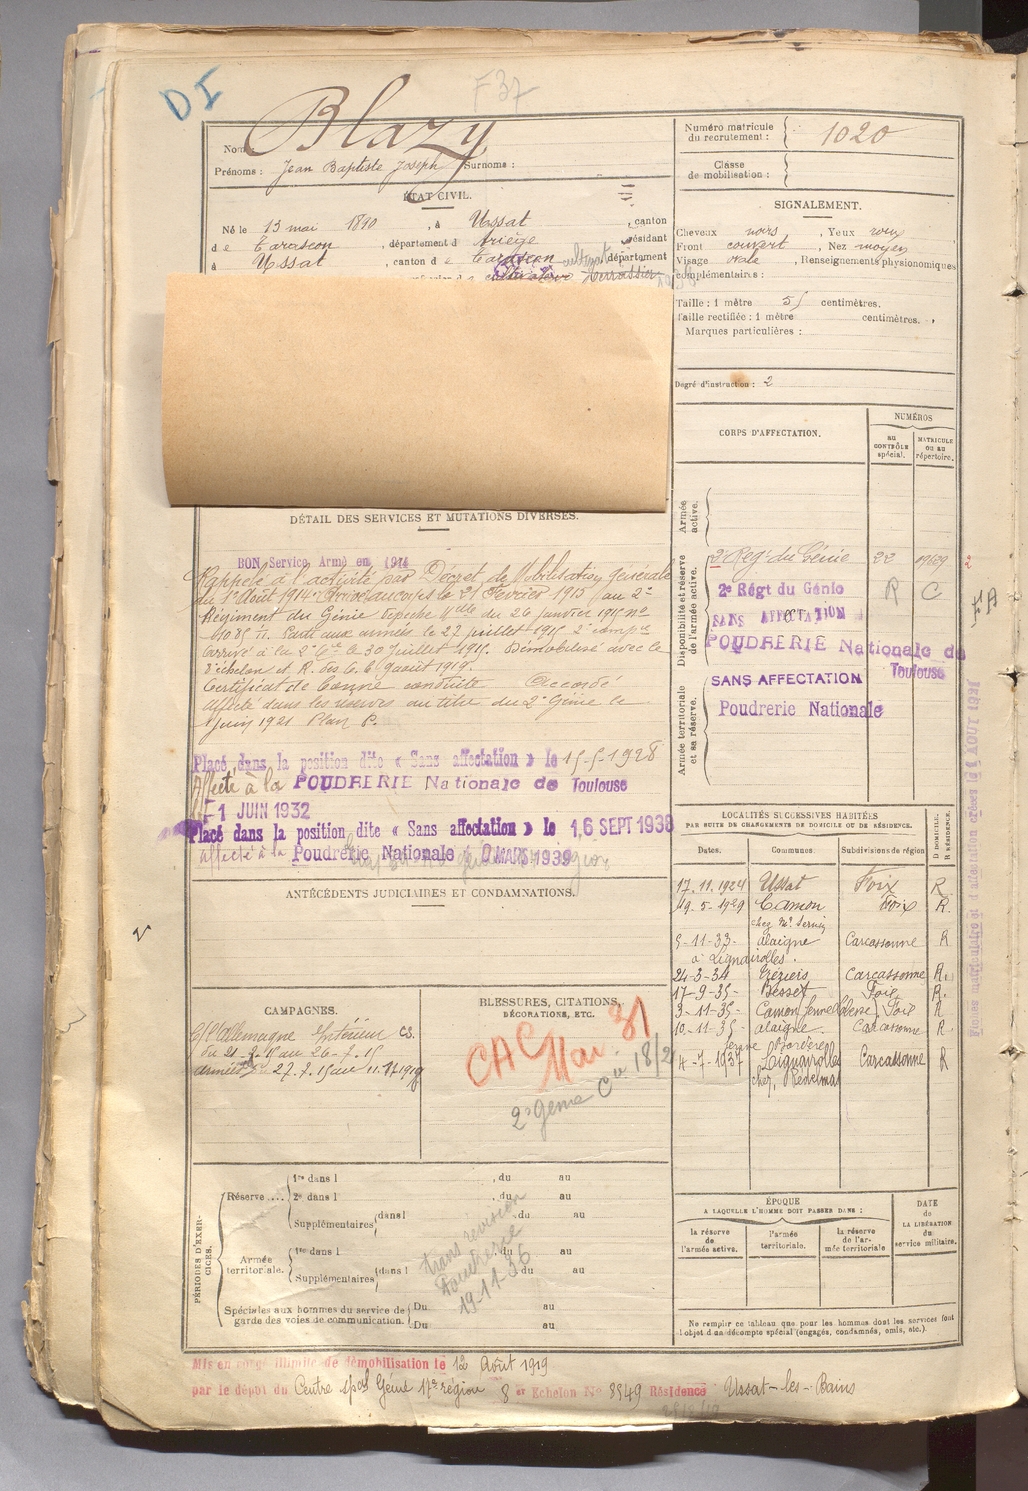 DI
F 37
Nom : Blazy
Prénoms : Jean Baptiste Joseph Surnoms :
ÉTAT CIVIL.
Né le 13 mai 1890, à Ussat, canton
de Tarascon, département d Ariège, résidant
à Ussat, canton de Tarascon, département
cultivateur Terrassier
Numéro matricule
du recrutement : 1020
Classe
de mobilisation :
SIGNALEMENT.
Cheveux noirs, Yeux roux
Front couvert, Nez moyen
Visage ovale, Renseignements physionomiques
complémentaires :
Taille : 1 mètre 51 centimètres.
Taille rectifiée : 1 mètre centimètres.
Marques particulières :
Degré d'instruction : 2
CORPS D'AFFECTATION.
NUMÉROS
au
CONTRÔLE
spécial.
MATRICULE
ou au
répertoire.
Armée
active.
Disponibilité et réserve
de l'armée active.
2e Régt du Génie 22
2e Régt du Génio R C
SANS AFFECTATION
POUDRERIE Nationale de
Toulouse
SANS AFFECTATION
Poudrerie Nationale
Armée territoriale
et sa réserve.
FA
DÉTAIL DES SERVICES ET MUTATIONS DIVERSES.
BON Service Armé en 1914
Rappelé à l'activité par Décret de Mobilisation Générale
du 1er Août 1914. Arrivé au corps le 21 Février 1915 au 2e
Régiment du Génie Dépêche Mlle du 26 Janvier 1915 No
Parti aux armées le 27 juillet 1915 2e Compie
Arrivé à la le 30 Juillet 1915. Démobilisé avec le
8e échelon 9 août 1919.
Certificat de Bonne conduite Accordé
Affecté dans les réserves au titre du 2e Génie le
Juin 1921 Plan P.
Placé dans la position dite « Sans affectation » le 15-5-1928
Affecté à la POUDRERIE Nationale de Toulouse
LE 1 JUIN 1932
Placé dans la position dite « Sans affectation » le 16 SEPT 1938
affecté à la Poudrerie Nationale MARS 1939
ANTÉCÉDENTS JUDICIAIRES ET CONDAMNATIONS.
CAMPAGNES.
C/ l'Allemagne Intérieur CS.
du 21-2-15 au 26-7-15
Armées 27.7.15 au 11.8.1919
BLESSURES, CITATIONS,
DÉCORATIONS, ETC.
CAC Mai 31
2e Génie
LOCALITÉS SUCCESSIVES HABITÉES
PAR SUITE DE CHANGEMENTS DE DOMICILE OU DE RÉSIDENCE.
Dates. Communes. Subdivisions de région D DOMICILE. R RÉSIDENCE.
17.11.1924 Ussat Foix R
19-5-1929 Camon Foix R.
5-11-33- Alaigne Carcassonne R
à Lignairolles.
24-3-34 Carcassonne R.
17-9-35- Besset Foix R.
3-11-35- Camon Foix R
10-11-35- Alaigne. Carcassonne R
4-7-1937 Lignairolles Carcassonne R
PÉRIODES D'EXERCICES.
Réserve ... 1re dans l , du au
2e dans l , du au
Supplémentaires dans l , du au
Armée
territoriale. 1re dans l , du au
Supplémentaires dans l , du au
Spéciales aux hommes du service de
garde des voies de communication. Du au
Du au
19-11-36
ÉPOQUE
A LAQUELLE L'HOMME DOIT PASSER DANS :
la réserve
de
l'armée active.
l'armée
territoriale.
la réserve
de l'armée territoriale
DATE
de
LA LIBÉRATION
du
service militaire.
Ne remplir ce tableau que pour les hommes dont les services font
l'objet d'un décompte spécial (engagés, condamnés, omis, etc.).
Mis en congé illimité de démobilisation le 12 Août 1919
par le dépôt du Centre spal Génie 17e région 8e Echelon No 8949 Résidence Ussat-les-Bains